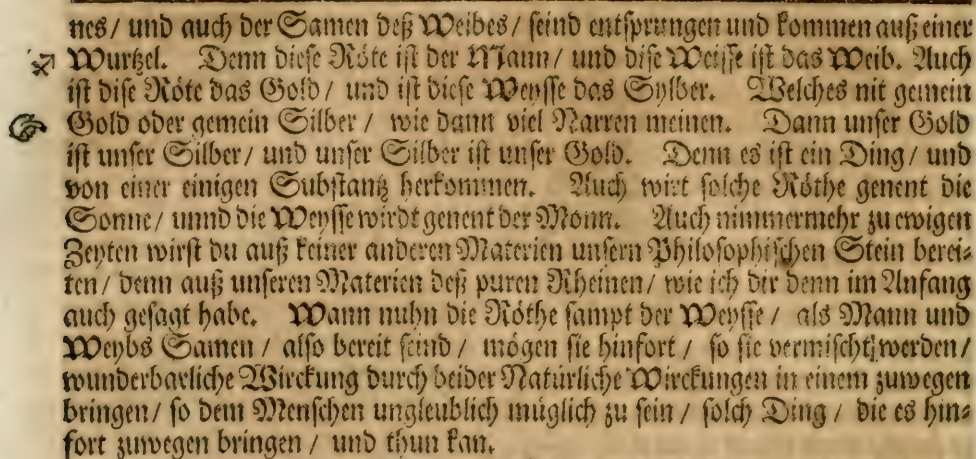 nes / und auch der Samen deß Weibes / seind entsprungen und kommen auß einer
Wurtzel. Denn diese Röte ist der Mann / und dise Weisse ist das Weib. Auch
ist dise Röte das Gold / und ist diese Weysse das Sylber. Welches nit gemein
Gold oder gemein Silber / wie dann viel Narren meinen. Dann unser Gold
ist unser Silber / und unser Silber ist unser Gold. Denn es ist ein Ding / und
von einer einigen Substantz herkommen. Auch wirt solche Röthe genent die
Sonne / unnd die Weysse wirdt genent der Monn. Auch nimmermehr zu ewigen
Zeyten wirst du auß keiner anderen Materien unsern Philosophischen Stein berei-
ten / denn auß unseren Materien deß puren Rheinen / wie ich dir denn im Anfang
auch gesagt habe. Wann nuhn die Röthe sampt der Weysse / als Mann und
Weybs Samen / also bereit seind / mögen sie hinfort / so sie vermischt werden /
wunderbarliche Wirckung durch beider Natürliche Wirckungen in einem zuwegen
bringen / so dem Menschen ungleublich müglich zu sein / solch Ding / die es hin-
fort zuwegen bringen / und thun kan.